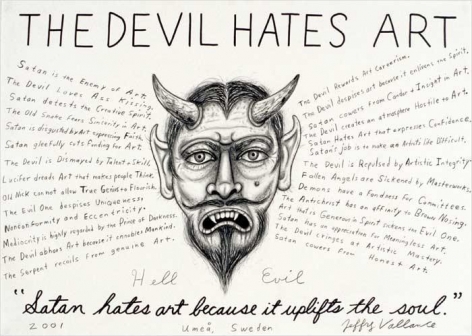 THE DEVIL HATES ART
Satan is the Enemy of Art.
The Devil Loves Ass Kissing.
Satan detests the Creative Spirit.
The Old Snake fears Sincerity in Art.
Satan is disgusted by Art expressing Faith.
Satan gleefully cuts Funding for Art.
The Devil is Dismayed by Talent & Skill.
Lucifer dreads Art that makes people Think.
Old Nick cannot allow True Genius to Flourish.
The Evil One despises Uniqueness
Nonconformity and Eccentricity.
Mediocrity is highly regarded by the Prince of Darkness.
The Devil abhors Art because it ennobles Mankind.
The Serpent recoils from genuine Art.
The Devil Rewards Art Careerism.
The Devil despises art because it enlivens the Spirit.
Satan cowers from Candor & Insight in Art.
The Devil creates an atmosphere Hostile to Art.
Satan hates Art that expresses Confidence.
Satan's job is to make an Artists life Difficult.
The Devil is Repulsed by Artistic Integrity.
Fallen Angels are Sickened by Masterworks.
Demons have a Fondness for Committees.
The Antichrist has an affinity to Brown Nosing.
Art that is Generous in Spirit sickens the Evil One.
Satan has an appreciation for Meaningless Art.
The Devil cringes at Artistic Mastery.
Satan cowers from Honest Art.
Hell Evil
"Satan hates art because it uplifts the soul."
2001 Umeå, Sweden Jeffrey Vallance